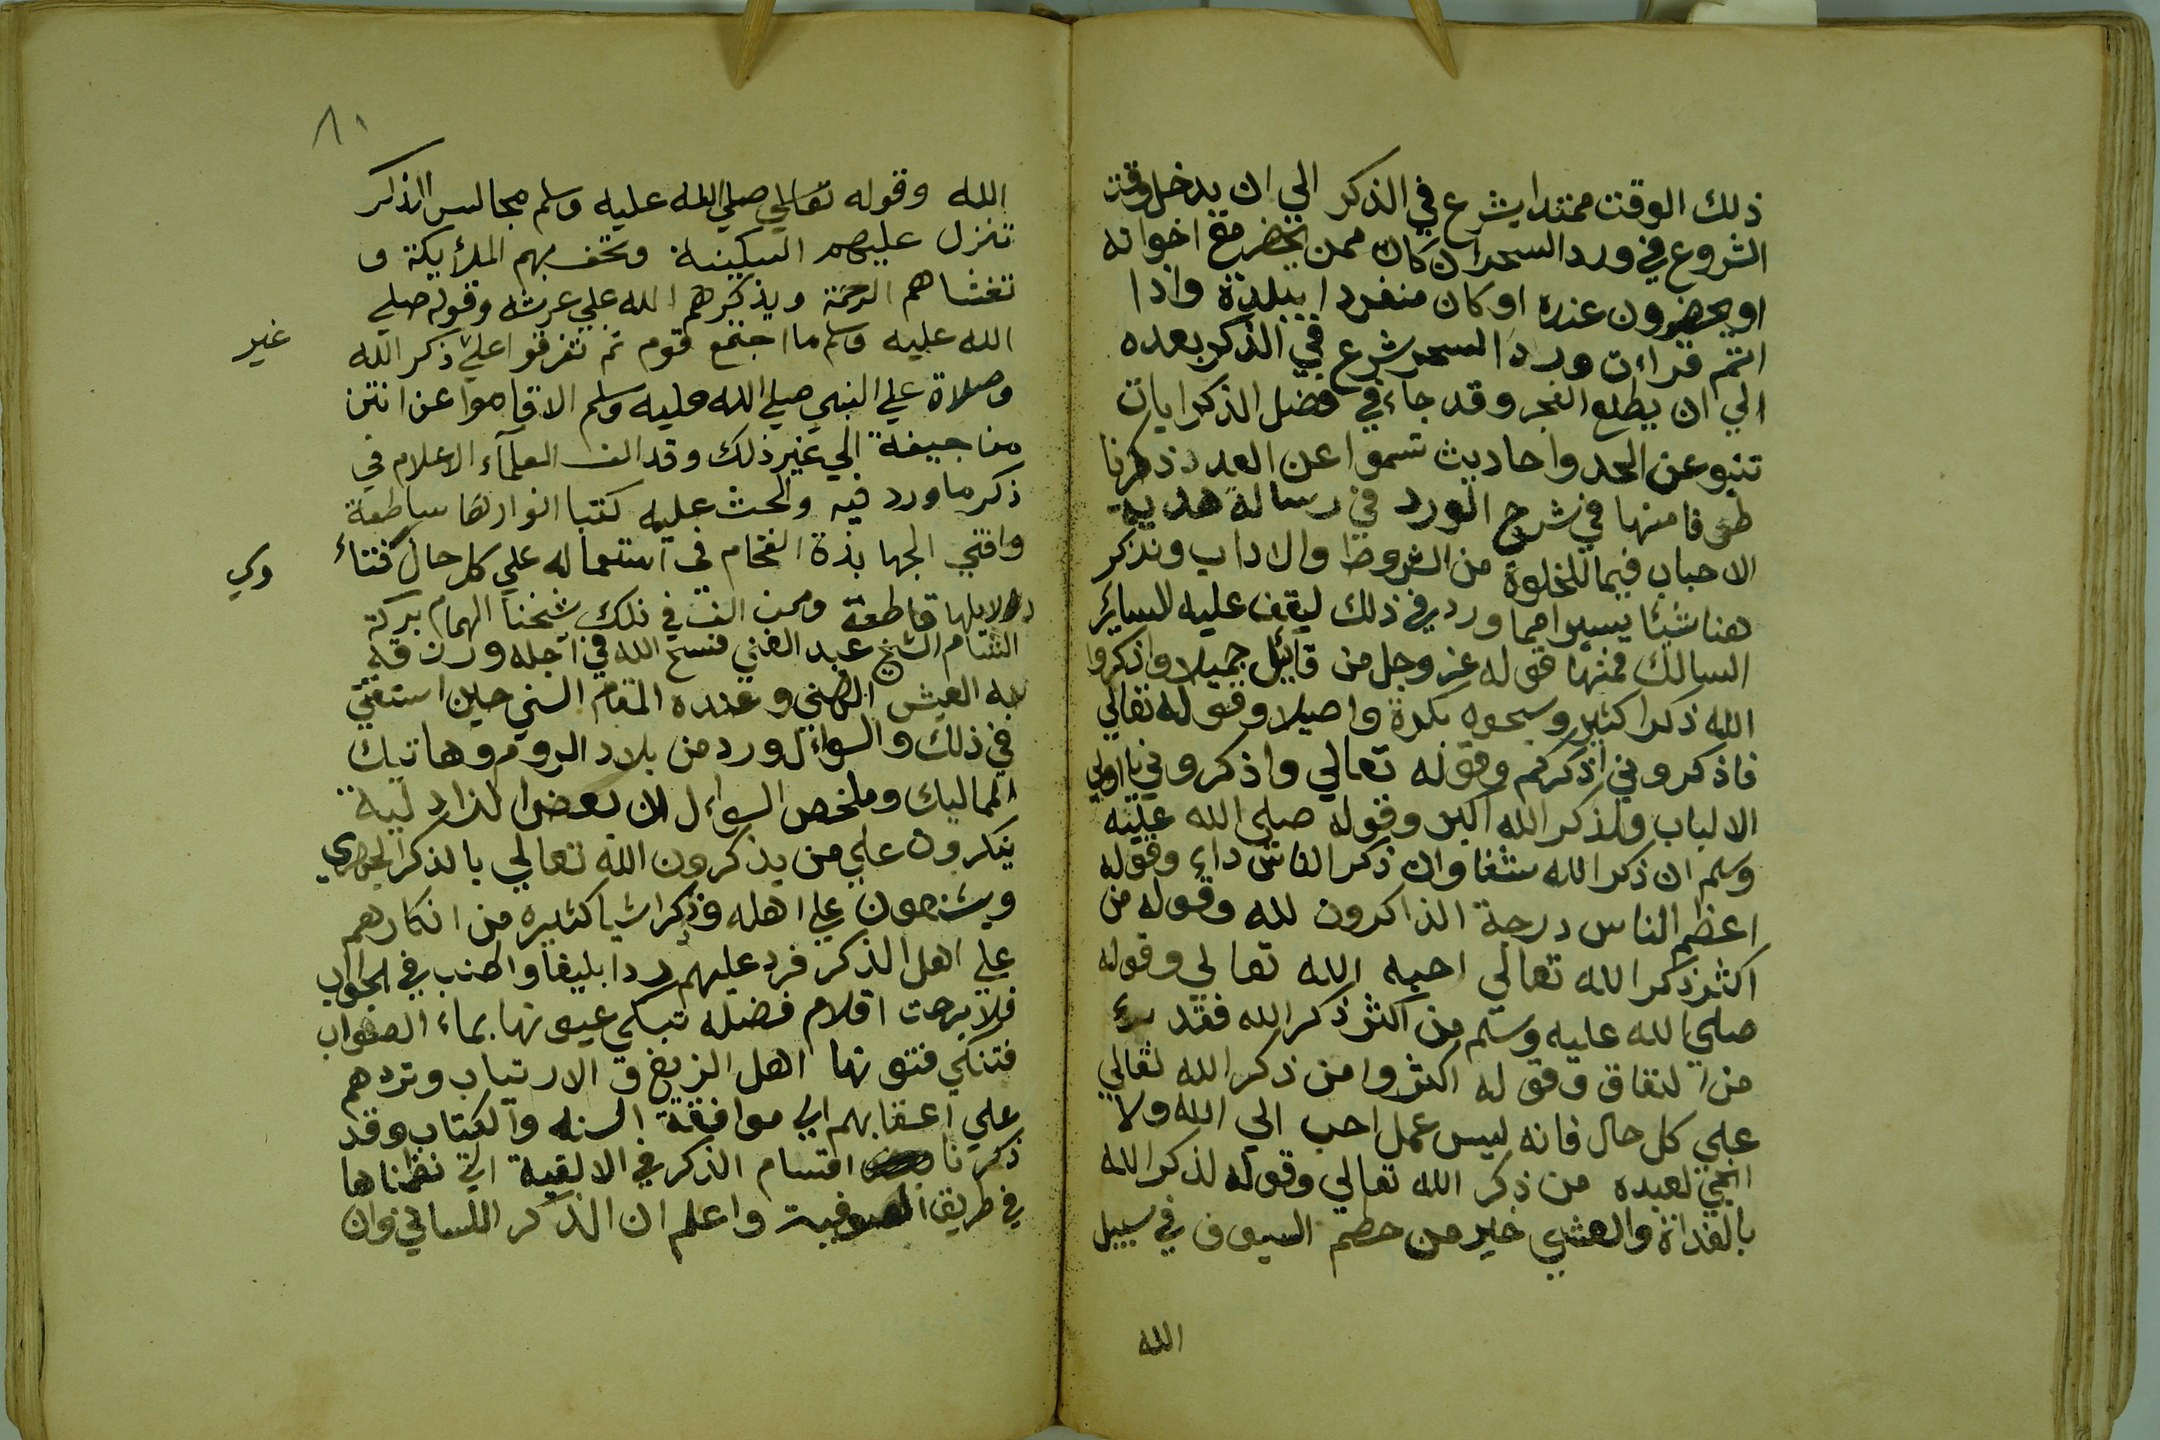 ذلك الوقت ممتدا يشرع في الذكر الي ان يدخل وقت
الشروع في ورد السحر ان كان ممن يحضر مع اخوانه
او يحضرون عنده او كان منفردا ببلدة واذا
اتم قراءت ورد السحر شرع في الذكر بعده
الي ان يطلع الفجر وقد جاء في فضل الذكر ايات
تنبو عن الحد واحاديث تسموا عن العدد ذكرنا
طرفا منها في شرح الورد في رسالة هدية
الاحباب فيما للخلوة من الشروط والاداب ونذكر
هنا شيئا يسيرا مما ورد في ذلك ليقف عليه الساير
السالك فمنها قوله عز وجل من قائل جميلا واذكروا
الله ذكرا كثير وسبحوه بكرة واصيلا وقوله تعالي
فاذكروني اذكركم وقوله تعالي واذكروني يا اولي
الالباب ولذكر الله اكبر وقوله صلي الله عليه
وسلم ان ذكر الله شفا وان ذكر الناس داء وقوله
اعظم الناس درجة الذاكرون لله وقوله من
اكثر ذكر الله تعالي احبه الله تعالي وقوله
صلي الله عليه وسلم من اكثر ذكر الله فقد برئ
من النفاق وقوله اكثروا من ذكر الله تعالي
علي كل حال فانه ليس عمل احب الي الله ولا
انجي لعبده من ذكر الله تعالي وقوله لذكر الله
بالغداة والعشي خير من حطم السيوف في سبيل
الله
٨١
الله وقوله تعالي صلي الله عليه وسلم مجالس الذكر
تنزل عليهم السكينة وتحف بهم الملايكة و
تغشاهم الرحمة ويذكرهم الله علي عرشه وقوله صلي
الله عليه وسلم ما اجتمع قوم ثم تفرقوا علي ذكر الله
غير
وصلاة علي النبي صلي الله عليه وسلم الا قاموا عن انتن
من جيفة الي غير ذلك وقد الف العلمآء الاعلام في
ذكر ما ورد فيه والحث عليه كتبا انوارها ساطعة
وافتي الجهابذة الفخام في استعماله علي كل حال فتاء
وي
دلايلها قاطعة وممن الف في ذلك شيخنا الهمام بركة
الشام الشيخ عبد الغني فسح الله في اجله ورزقه
به العيش الهني وعنده المقام السني حين استفتي
في ذلك والسواءل ورد من بلاد الروم وهاتيك
الممالك وملخص السواءل ان بعض
ينكرون علي من يذكرون الله تعالي بالذكر الجهري
ويشنعون علي اهله وذكر اشيا كثيرة من انكارهم
علي اهل الذكر فرد عليهم ردا بليغا واطنب في الجواب
فلا برحت اقلام فضله تبكي عيونها بماء الصواب
فتنكي فتونها اهل الزيغ و الارتياب وتردهم
علي اعقابهم الي موافقة السنه والكتاب وقد
ذكرنا اقسام الذكر في الالفية التي نظمناها
في طريق الصوفية واعلم ان الذكر اللساني وان